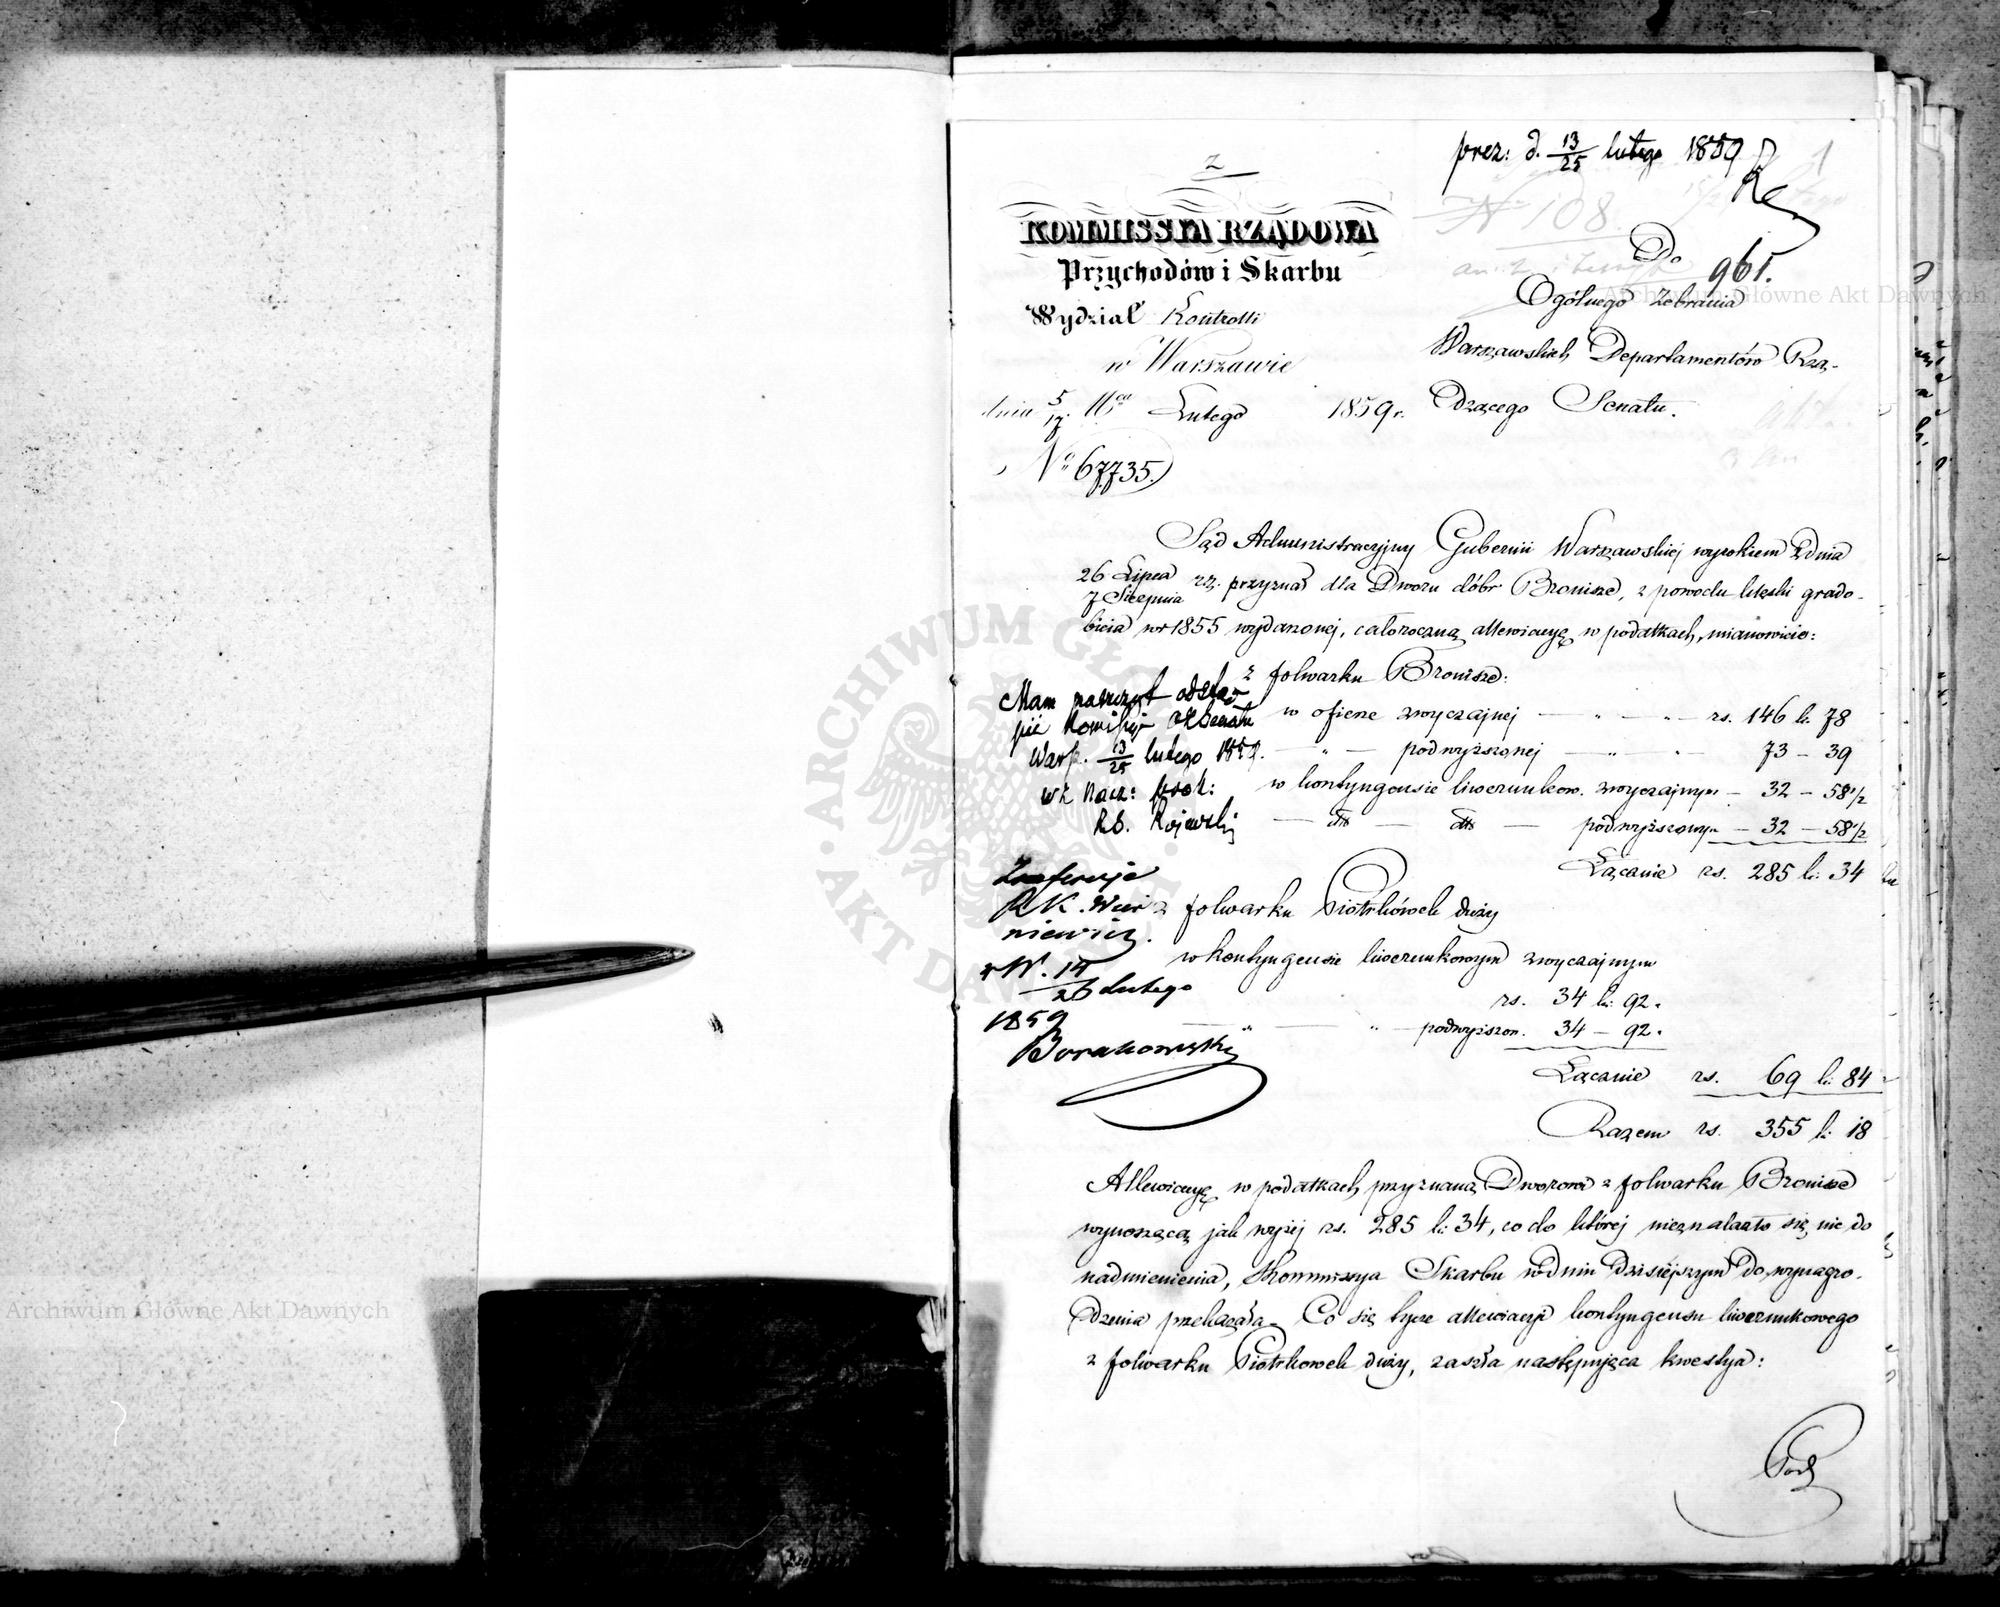 prez: d. 13/25 lutego 1859
1
2
N 108
KOMMISSYA RZĄDOWA
Przychodów i Skarbu
Wydział Kontrolli
w Warszawie
dnia 5/17 Mca Lutego 1859 r.
No 67735.
Do
961.
Ogólnego Zebrania
Warszawskich Departamentów Rzą-
dzącego Senatu.
Sąd Administracyjny Gubernii Warszawskiej wyrokiem z dnia
26 Lipca / 7 Sierpnia rz. przyznał dla Dworu dóbr Bronisze, z powodu klęski grado-
bicia w r 1855 wydarzonej, całoroczną allewiacyę w podatkach, mianowicie:
z folwarku Bronisze:
w ofierze zwyczajnej — " — " — rs. 146 k: 78
— " — podwyższonej — " — " 73 – 39
w kontyngensie liwerunkow. zwyczajnym – 32 – 58 1/2
— dto — dto — podwyższonym – 32 – 58 1/2
Łącznie rs. 285 k: 34
z folwarku Piotrkówek duży
w kontyngensie liwerunkowym zwyczajnym
rs. 34 k: 92.
— " — " — podwyższon. 34 – 92.
Łącznie rs. 69 k: 84
Razem rs. 355 k: 18
Mam zaszczyt odstą-
pić
Warsz. 13/25 lutego 1859.
wz Nacz: prok:
Rd. Kojewski
Zreferuje
R K. Wiś
niewicz.
w W. 14/26 Lutego
1859
Borakowski
Allewiacyę w podatkach przyznaną Dworowi z folwarku Bronisze
wynoszącą jak wyżej rs. 285 k: 34, co do której nieznalazło się nic do
nadmienienia, Kommissya Skarbu w dniu dzisiejszym do wynagro-
dzenia przekazała. Co się tycze allewiacyi kontyngensu liwerunkowego
z folwarku Piotrkówek duży, zaszła następująca kwestya:
Archiwum Główne Akt Dawnych
Archiwum Główne Akt Dawnych
ARCHIWUM GŁÓWNE AKT DAWNYCH